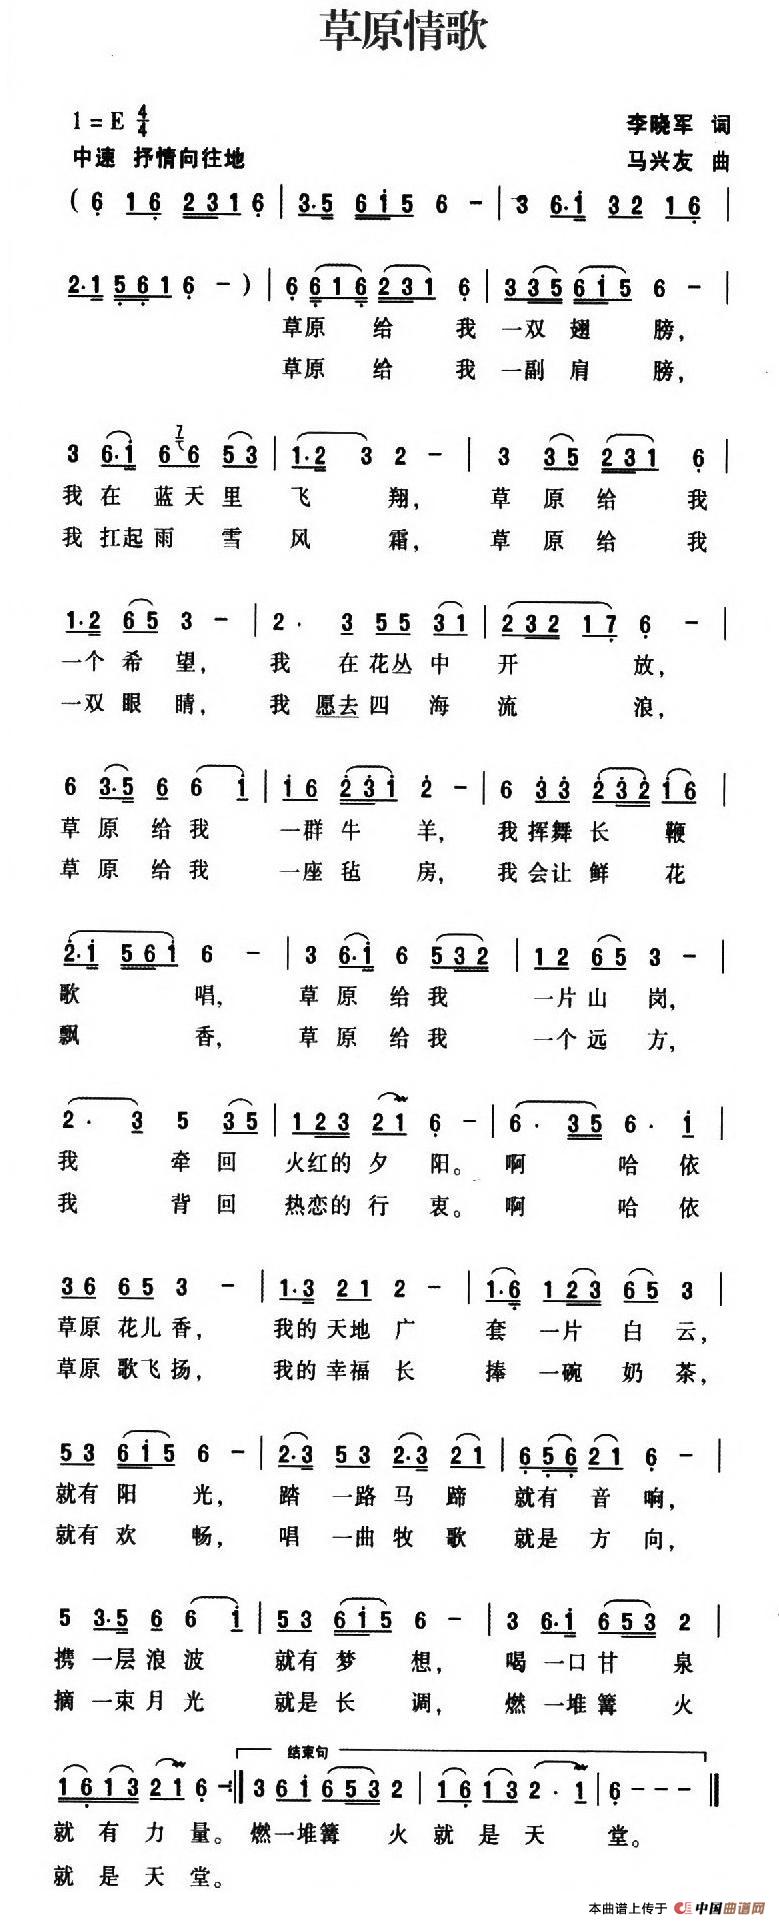 草原情歌
1=E 4/4
李晓军 词
中速 抒情向往地
马兴友 曲
( 6 1 6 2 3 1 6 | 3·5 6 1 5 6 - | 3 6·1 3 2 1 6 |
2·1 5 6 1 6 - ) | 6 6 1 6 2 3 1 6 | 3 3 5 6 1 5 6 - |
草原 给 我 一双 翅 膀,
草原 给 我 一副 肩 膀,
3 6·1 6 7 6 5 3 | 1·2 3 2 - | 3 3 5 2 3 1 6 |
我 在 蓝 天 里 飞 翔, 草 原 给 我
我 扛起 雨 雪 风 霜, 草 原 给 我
1·2 6 5 3 - | 2· 3 5 5 3 1 | 2 3 2 1 7 6 - |
一个 希 望, 我 在 花丛 中 开 放,
一双 眼 睛, 我 愿去 四 海 流 浪,
6 3·5 6 6 1 | 1 6 2 3 1 2 - | 6 3 3 2 3 2 1 6 |
草 原 给 我 一群 牛 羊, 我 挥舞 长 鞭
草 原 给 我 一座 毡 房, 我 会让 鲜 花
2·1 5 6 1 6 - | 3 6·1 6 5 3 2 | 1 2 6 5 3 - |
歌 唱, 草 原 给 我 一片 山 岗,
飘 香, 草 原 给 我 一个 远 方,
2· 3 5 3 5 | 1 2 3 2 1 6 - | 6· 3 5 6· 1 |
我 牵 回 火红的 夕 阳。 啊 哈 依
我 背 回 热恋的 行 衷。 啊 哈 依
3 6 6 5 3 - | 1·3 2 1 2 - | 1·6 1 2 3 6 5 3 |
草原 花儿 香, 我的 天地 广 套 一片 白 云,
草原 歌飞 扬, 我的 幸福 长 捧 一碗 奶 茶,
5 3 6 1 5 6 - | 2·3 5 3 2·3 2 1 | 6 5 6 2 1 6 - |
就有 阳 光, 踏 一路 马 蹄 就有 音 响,
就有 欢 畅, 唱 一曲 牧 歌 就是 方 向,
5 3·5 6 6 1 | 5 3 6 1 5 6 - | 3 6·1 6 5 3 2 |
携 一层 浪 波 就有 梦 想, 喝 一口 甘 泉
摘 一束 月 光 就是 长 调, 燃 一堆 篝 火
结束句
1 6 1 3 2 1 6 - :‖ 3 6 1 6 5 3 2 | 1 6 1 3 2· 1 | 6 - - - ‖
就 有 力 量。 燃一堆篝 火 就 是 天 堂。
就 是 天 堂。
本曲谱上传于 中国曲谱网